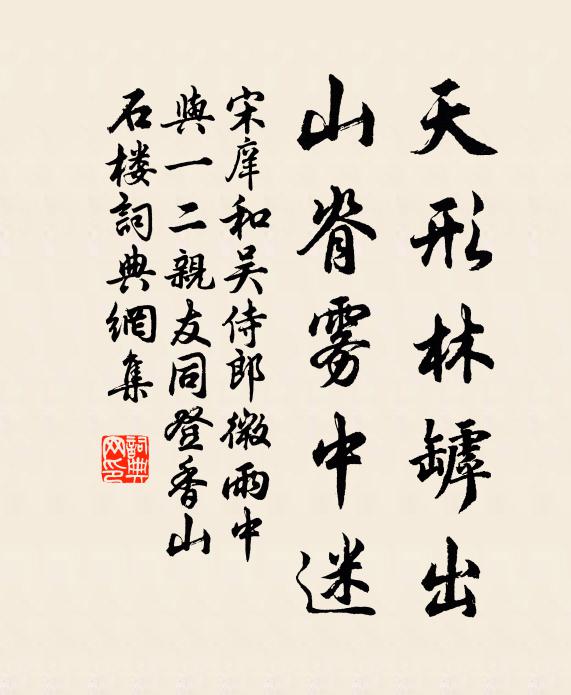 天形林罅出
山脊雾中迷
宋庠和吴侍郎微雨中
與一二親友同登香山
石楼詞典網集
詞典网印